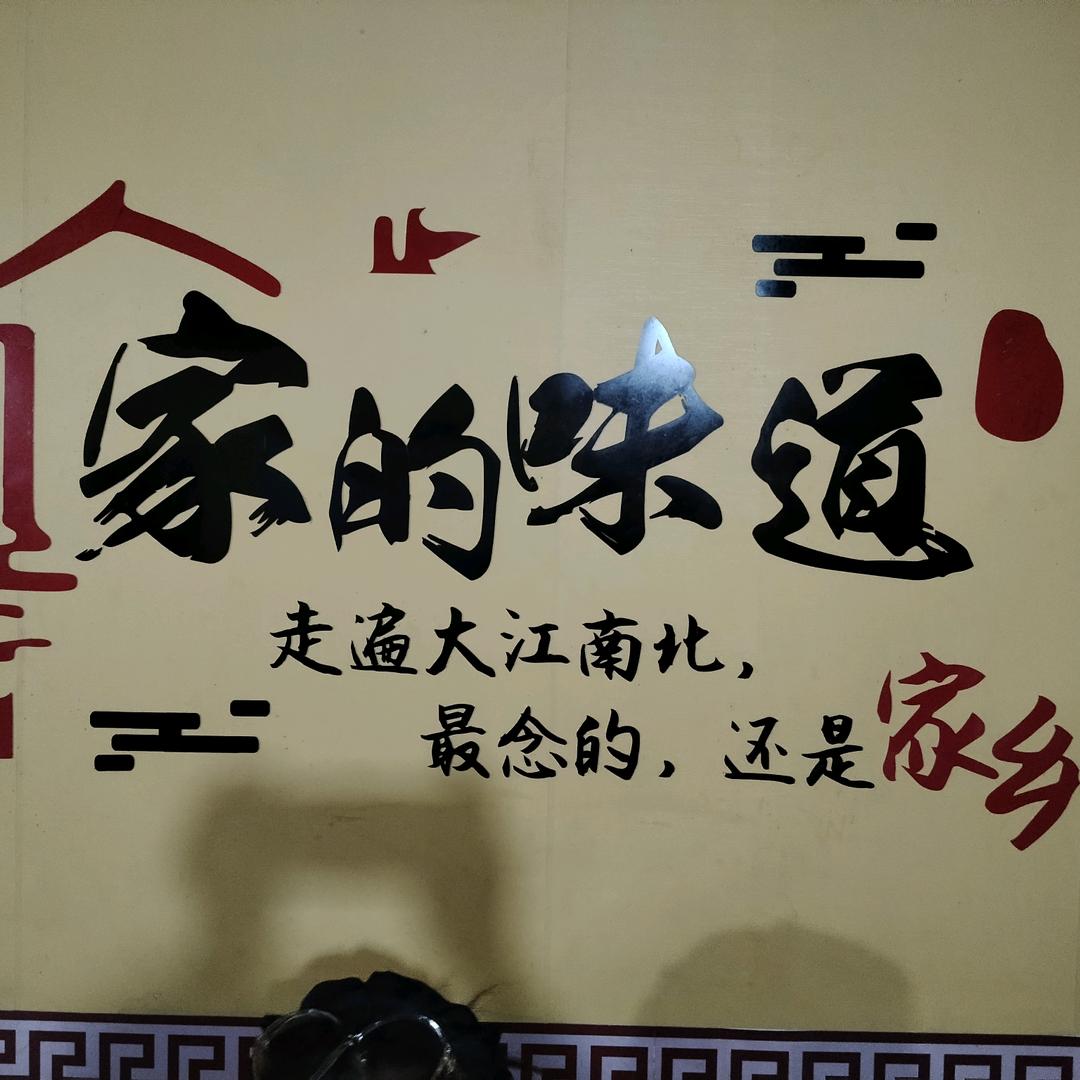 家的味道
走遍大江南北，
最念的，还是家乡